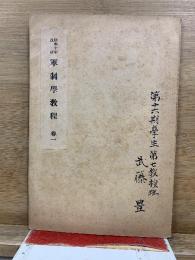 軍制學教程 卷一
第十六期學生第七教授班
武藤豊